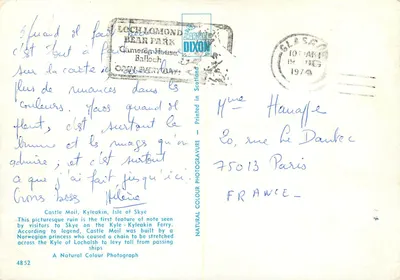 Quand il fait beau
c'est tout à fait
sur la carte
plus de nuances dans les
couleurs. Mais quand il
pleut, c'est surtout la
brume et les nuages qu'on
admire; et c'est surtout
ce que j'ai fait jusqu'ici.
Gros bises Hélène
Castle Moil, Kyleakin, Isle of Skye
This picturesque ruin is the first feature of note seen
by visitors to Skye on the Kyle - Kyleakin Ferry.
According to legend, Castle Moil was built by a
Norwegian princess who caused a chain to be stretched
across the Kyle of Lochalsh to levy toll from passing
ships
A Natural Colour Photograph
4852
LOCH LOMOND
BEAR PARK
Cameron House
Balloch
OPEN EVERY DAY
DIXON
NATURAL COLOUR PHOTOGRAVURE - Printed in Scotland
GLASGOW
1974
Mme
20, rue Le Dantec
75013 Paris
FRANCE